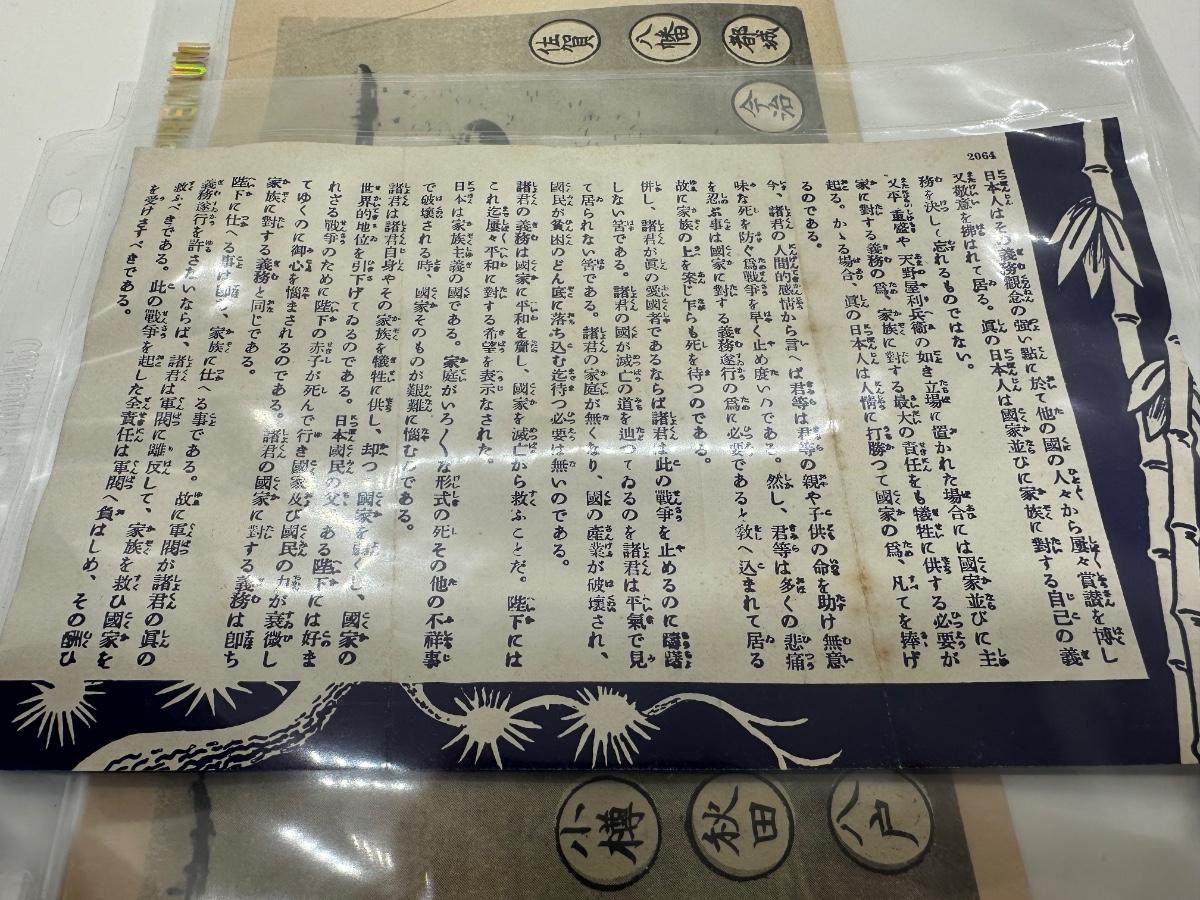 佐賀
八幡
都城
今治
2064
日本人はその義務觀念の强い點に於て他の國の人々から屢々賞讃を博し
又敬意を拂はれて居る。眞の日本人は國家並びに家族に對する自己の義
務を決して忘れるものではない。
又平重盛や天野屋利兵衞の如き立場に置かれた場合には國家並びに主
家に對する義務の爲、家族に對する最大の責任をも犧牲に供する必要が
起る。かゝる場合。眞の日本人は人情に打勝つて國家の爲、凡てを捧げ
るのである。
今、諸君の人間的感情から言へば君等は君等の親や子供の命を助け無意
味な死を防ぐ爲戰爭を早く止め度い
である。然し、君等は多くの悲痛
を忍ぶ事は國家に對する義務遂行の爲に必要であると敎へ込まれて居る
故に家族の上を案じ乍らも死を待つのである。
併し、諸君が眞の愛國者であるならば諸君は此の戰爭を止めるのに躊躇
しない筈である。諸君の國が滅亡の道を辿つてゐるのを諸君は平氣で見
て居られない筈である。諸君の家庭が無くなり、國の産業が破壞され、
國民が貧困のどん底に落ち込む迄待つ必要は無いのである。
諸君の義務は國家に平和を齎し、國家を滅亡から救ふことだ。陛下には
これ迄屢々平和に對する希望を表示なされた。
日本は家族主義の國である。家庭がいろ〱な形式の死その他の不祥事
で破壞される時、國家そのものが艱難に惱むのである。
諸君は諸君自身やその家族を犧牲に供し、却つて國家を
くし、國家の
世界的地位を引下げてゐるのである。日本國民の父
ある陛下には好ま
れざる戰爭のために陛下の赤子が死んで行き國家及び國民の力が衰微し
てゆくのに御心を惱まされるのである。諸君の國家に對する義務は卽ち
家族に對する義務と同じである。
陛下に仕へる事は卽ち、家族に仕へる事である。故に軍閥が諸君の眞の
義務遂行を許さないならば、諸君は軍閥に離反して、家族を救ひ國家を
救ふべきである。此の戰爭を起した全責任は軍閥へ負はしめ、その酬ひ
を受けさすべきである。
小樽
秋田
八戸